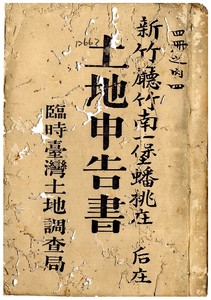 新竹廳竹南一堡蟠桃庄 后庄
土地申告書
臨時臺灣土地調查局